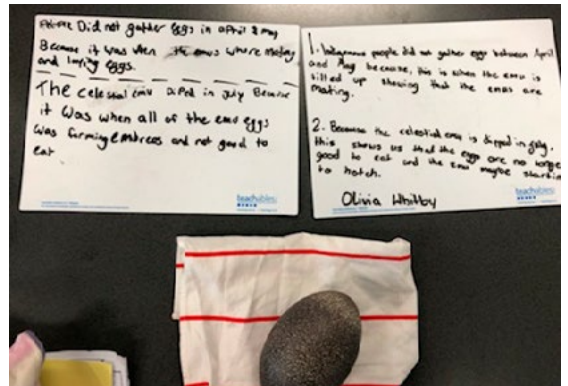 People Did not gather eggs in april & may
Because it was when the emus where mating
and laying eggs.
The celestial emu Dipped in july Because
it was when all of the emu eggs
was forming Embreos and not good to
eat
teachables
1. Indigenous people did not gather eggs between April
and May because, this is when the emu is
silled up showing that the emus are
mating.
2. Because the celestial emu is dipped in july.
this shows us that the eggs are no longe
good to eat and the emu maybe startin
to hatch.
Olivia Whitby
teachables